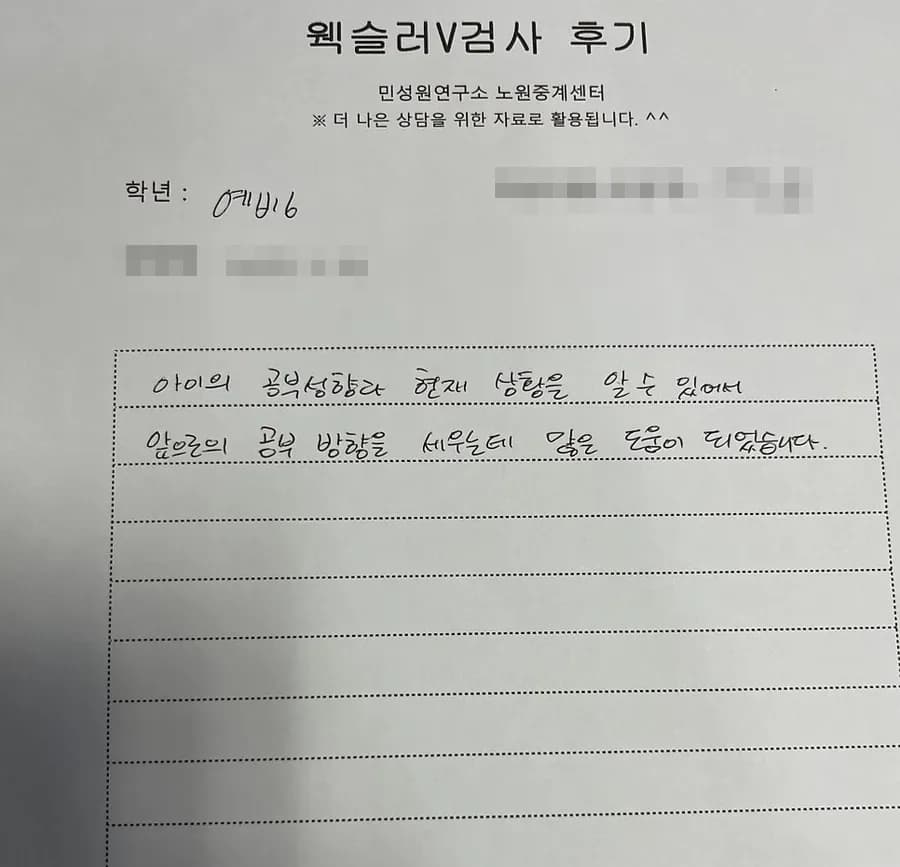 웩슬러V검사 후기
민성원연구소 노원중계센터
※ 더 나은 상담을 위한 자료로 활용됩니다. ^^
학년 : 예비6
아이의 공부성향과 현재 상황을 알 수 있어서
앞으로의 공부 방향을 세우는데 많은 도움이 되었습니다.